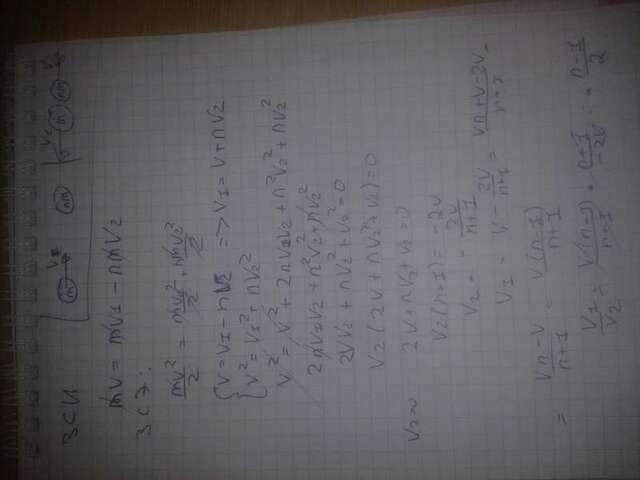 ЗСИ
m V1 nm V2 m nm V2
mV = mV1 - nmV2
ЗСЭ:
mV²/2 = mV1²/2 + nmV2²/2
{V = V1 - nV2 => V1 = V + nV2
{V² = V1² + nV2²
V² = V² + 2nV1V2 + n²V2² + nV2²
2nV1V2 + n²V2² + nV2²
2VV2 + nV2² + V2² = 0
V2(2V + nV2 + V2) = 0
V2 ≈ 2V + nV2 + V2 = 0
V2(n+1) = -2V
V2 = - 2V/(n+1)
V1 = V - 2V/(n+1) = (Vn + V - 2V)/(n+1) =
= (Vn - V)/(n+1) = V(n-1)/(n+1)
V1/V2 = V(n-1)/(n+1) · (n+1)/(-2V) = - (n-1)/2